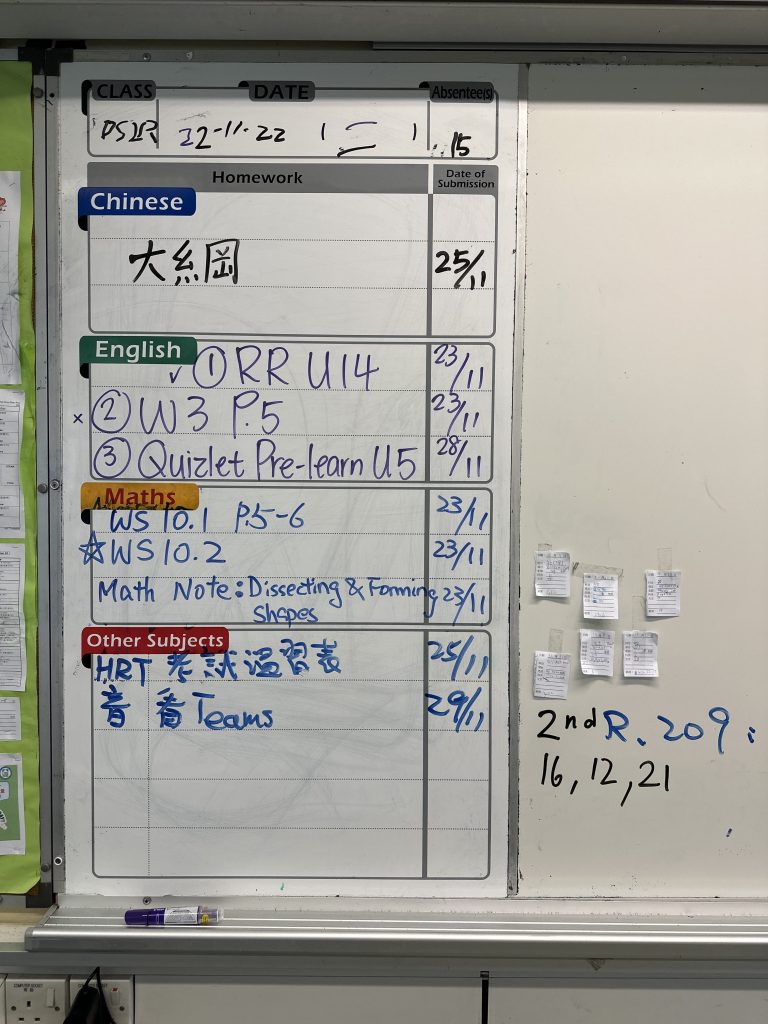 CLASS DATE Absentee(s)
22-11-22 (二) 15
Homework Date of Submission
Chinese
大綱 25/11
English
✓ ① RR U14 23/11
× ② W3 P.5 23/11
③ Quizlet Pre-learn U5 28/11
Maths
WS 10.1 P.5-6 23/11
☆ WS 10.2 23/11
Math Note: Dissecting & Forming Shapes 23/11
Other Subjects
HRT 考試溫習表 25/11
音 看 Teams 29/11
2nd R. 209:
16, 12, 21
COMPUTER SOCKET